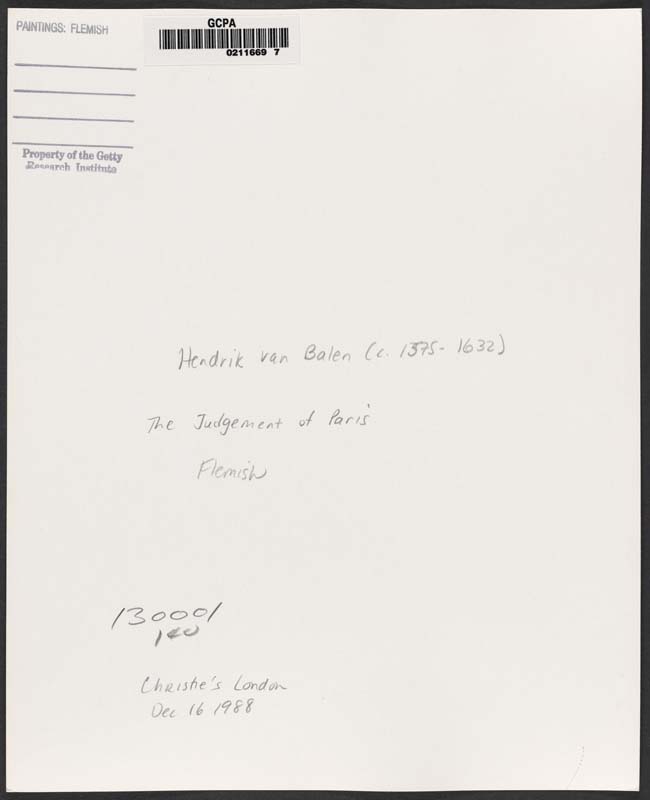 PAINTINGS: FLEMISH
GCPA
0211669 7
Property of the Getty
Research Institute
Hendrik van Balen (c. 1575-1632)
The Judgement of Paris
Flemish
130001
Christie's London
Dec 16 1988